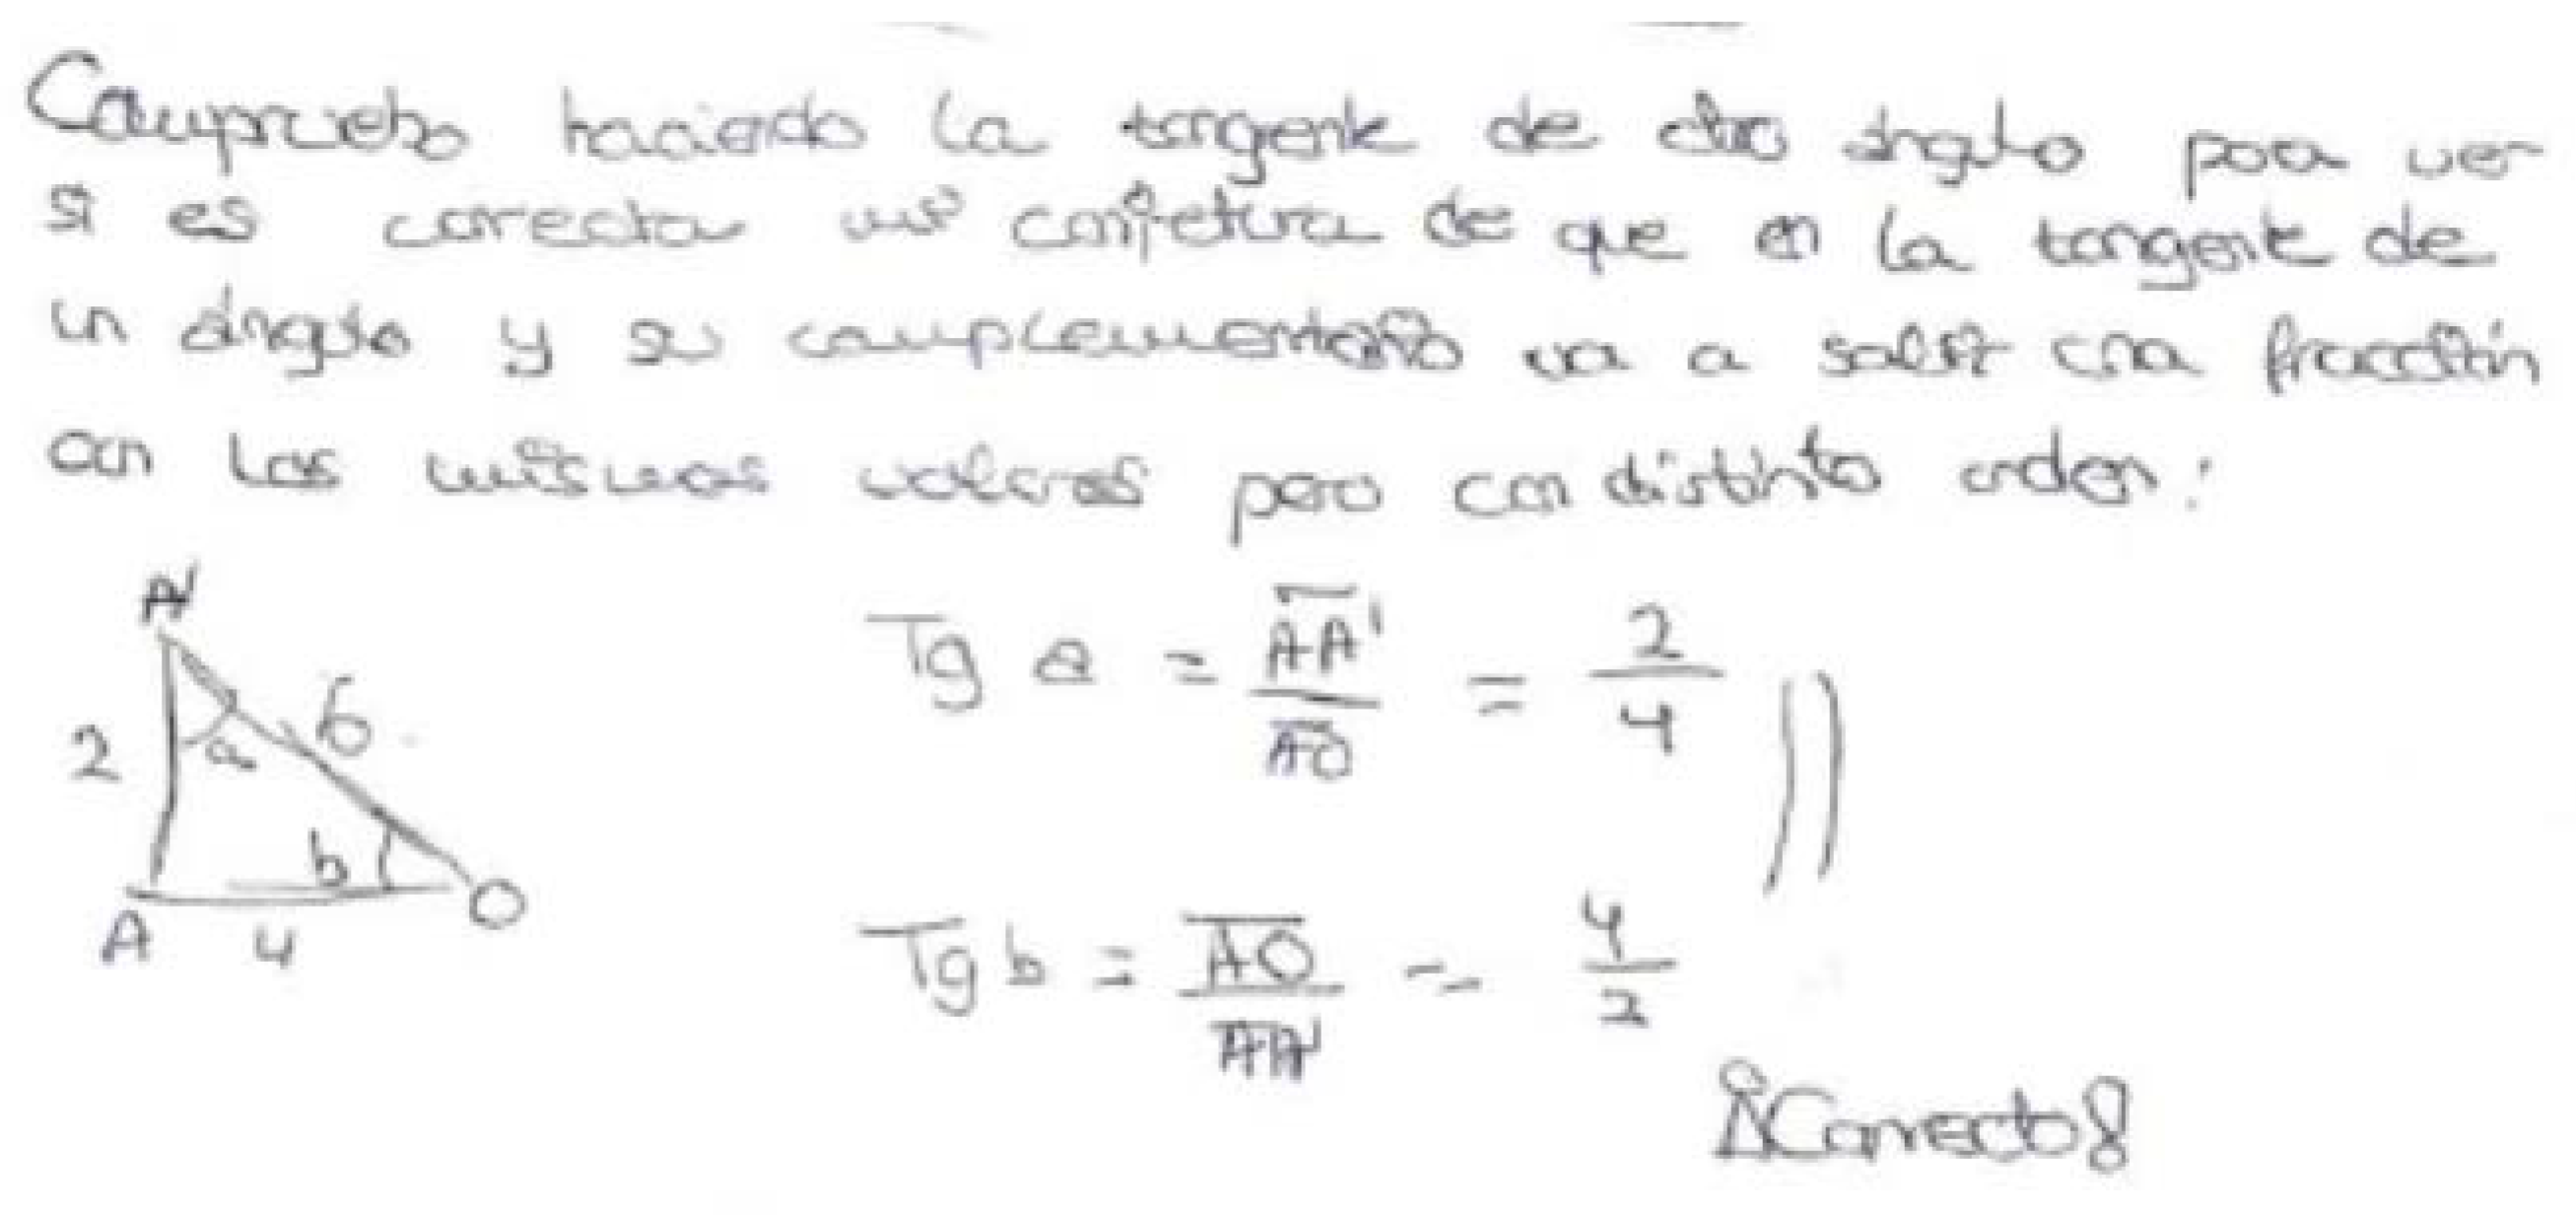 Compruebo haciendo la tangente de otro ángulo para ver
si es correcta mi conjetura de que en la tangente de
un ángulo y su complementario va a salir una fracción
con los mismos valores pero con distinto orden:
A'
2
6
a
b
A
4
O
Tg a = AA' / AO = 2/4
Tg b = AO / AA' = 4/2
¡Correcto!